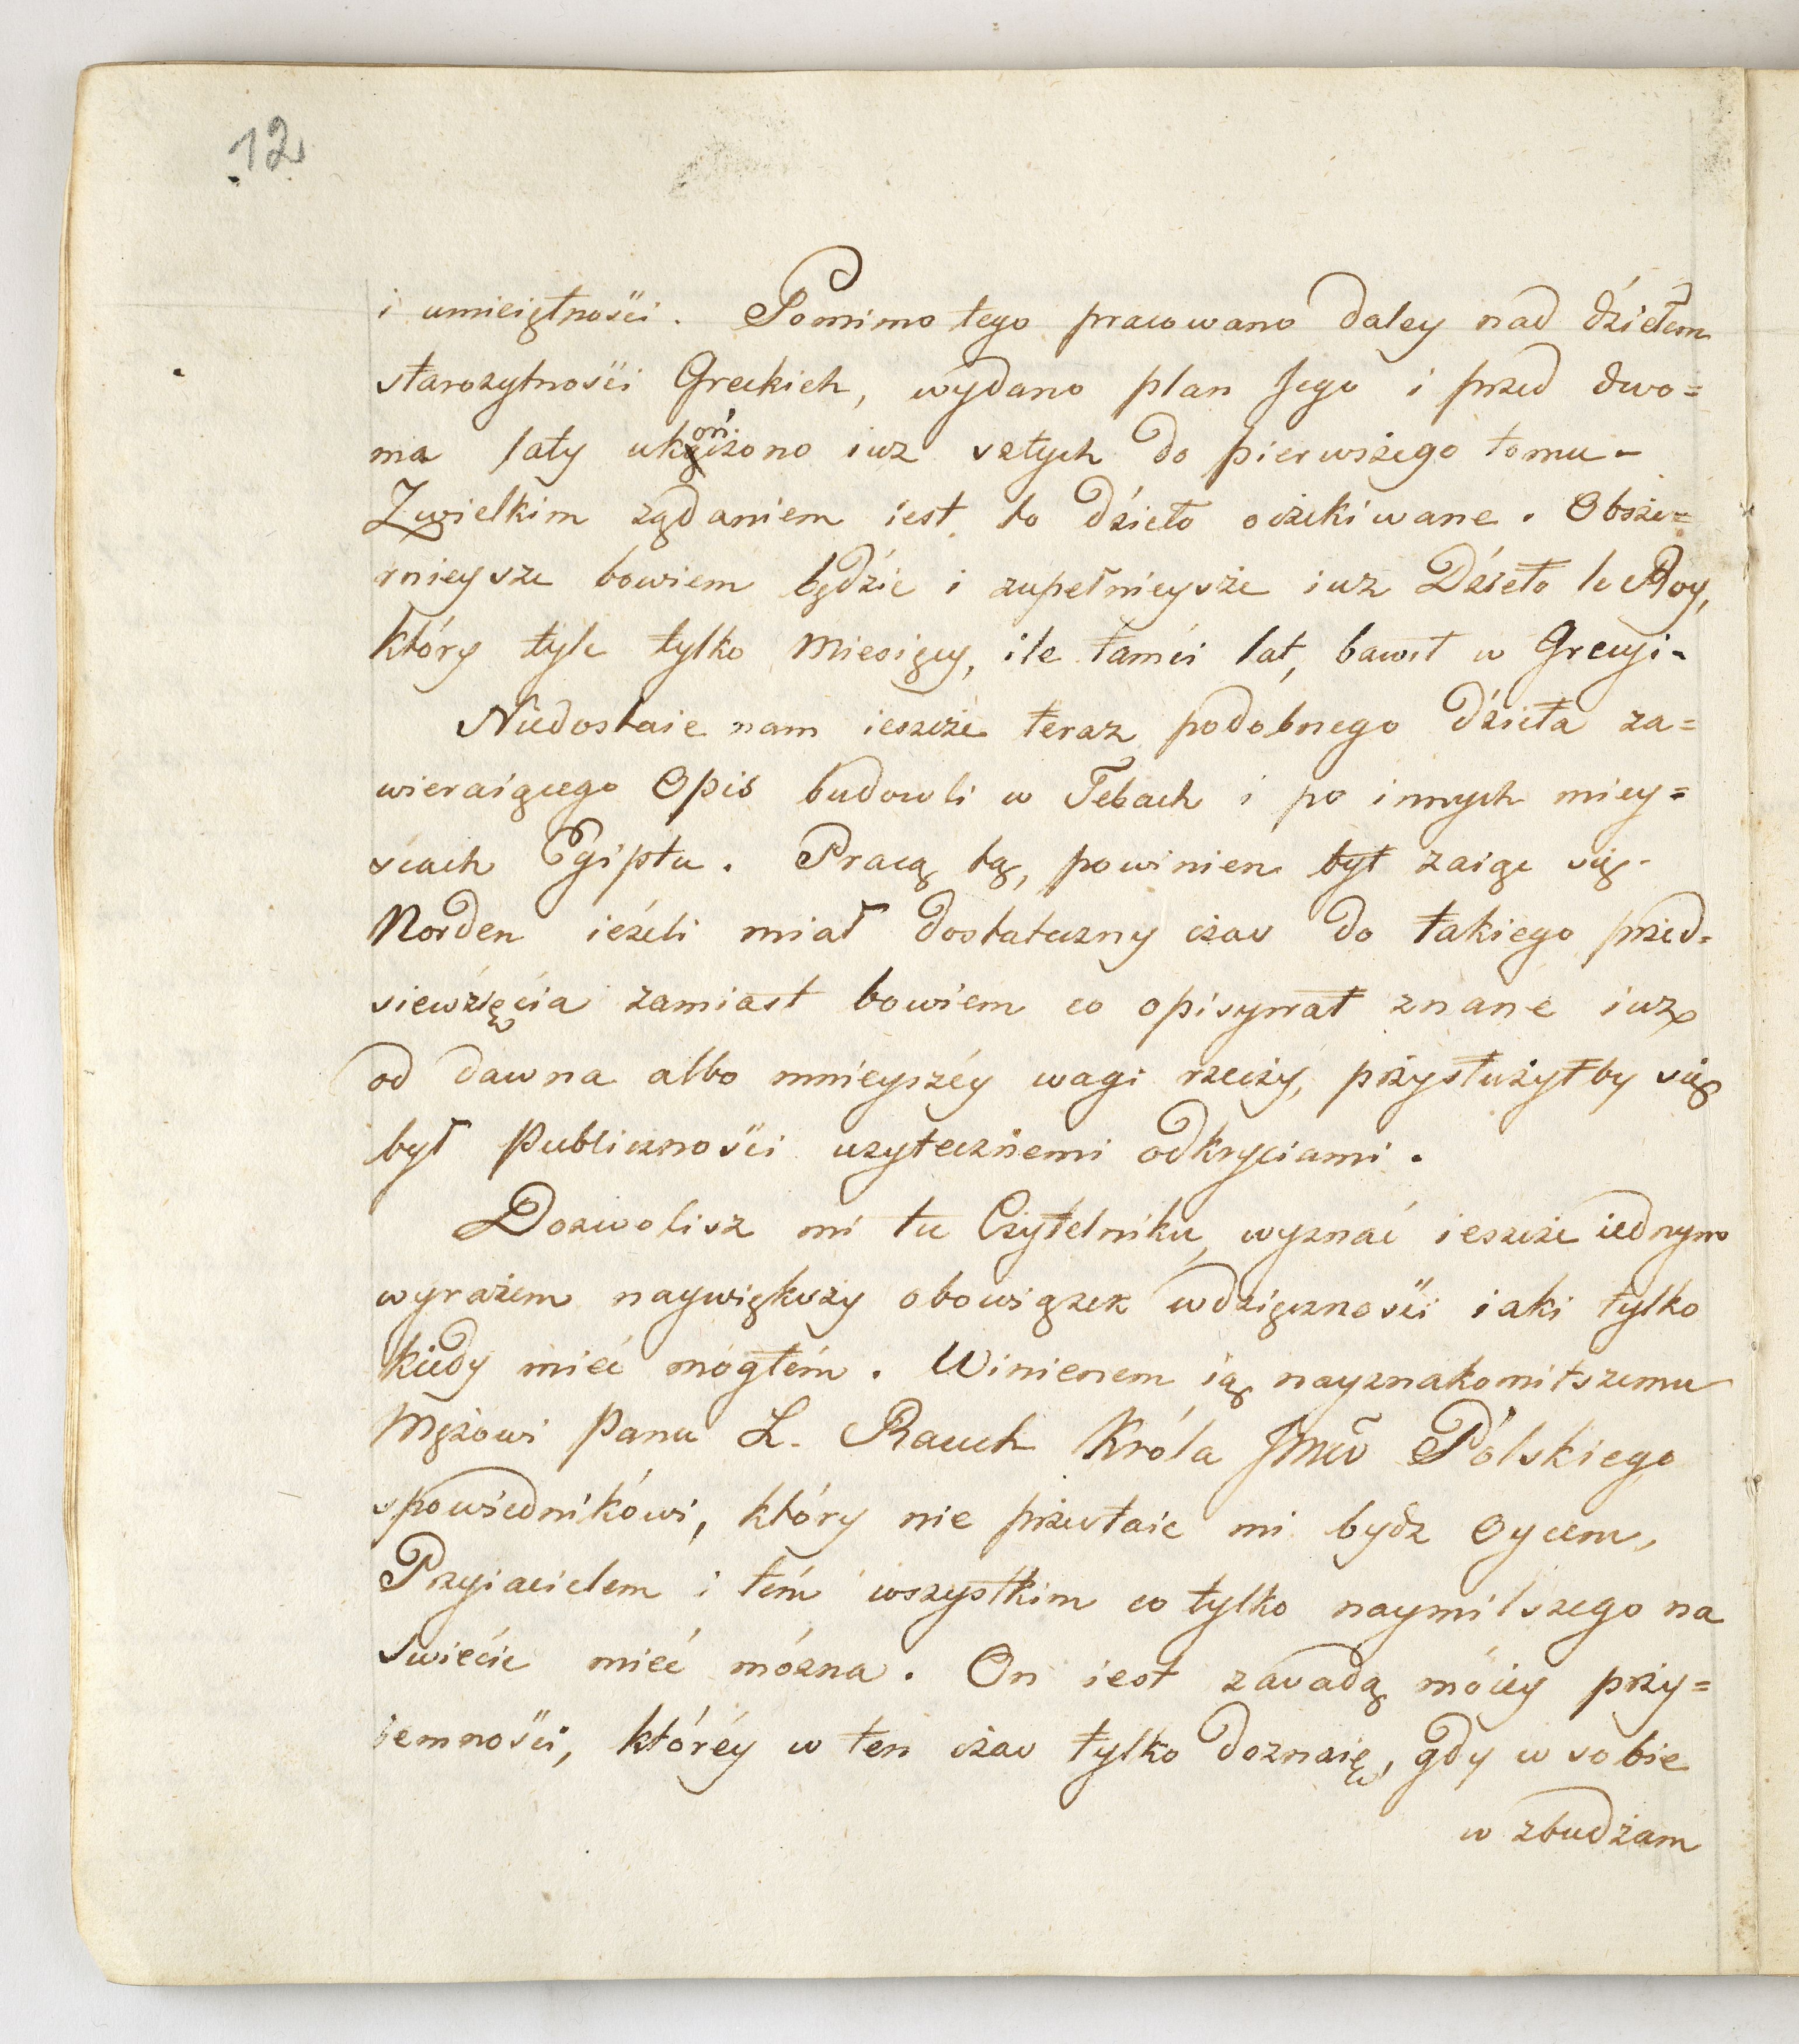 12
i umieiętnośći. Pomimo tego pracowano daley nad dziełem
starozytnośći Greckich, wydano plan Jego i przed dwo=
ma laty ukończono iuz sztych do pierwszego tomu-
Z wielkim ządaniem iest to dzieło oczekiwane. Obsze=
rnieysze bowiem będzie i zupełnieysze iuz Dzieło le Roy,
który tyle tylko Miesięcy, ile tamći lat, bawił w Grecyi-
Niedostaie nam ieszcze teraz podobnego dzieła za=
wieraiącego Opis budowli w Tebach i po innych miey=
scach Egiptu. Pracą tą, powinien był zaiąc się-
Norden ieźeli miał dostateczny czas do takiego przed=
siewzięcia zamiast bowiem co opisywał znane iuz
od dawna albo mnieyszéy wagi rzeczy, przysłużyłby się
był Publicznośći uzytecznemi odkryciami.
Dozwolisz mi tu Czytelniku, wyznać ieszcze iednym
wyrazem naywiększy obowiązek wdzięcznośći iaki tylko
kiedy mieć mógłém. Winienem ią nayznakomitszemu
Mężowi Panu L. Rauch Króla JMćo Pólskiego
spowiednikówi, który nie przestaie mi bydz Oycem,
Przyiacielem i tém wszystkim co tylko naymilszego na
swiećie mieć mózna. On iest zasadą móiey przy=
iemnośći, któréy w ten czas tylko doznaię, gdy w sobie
w zbudzam